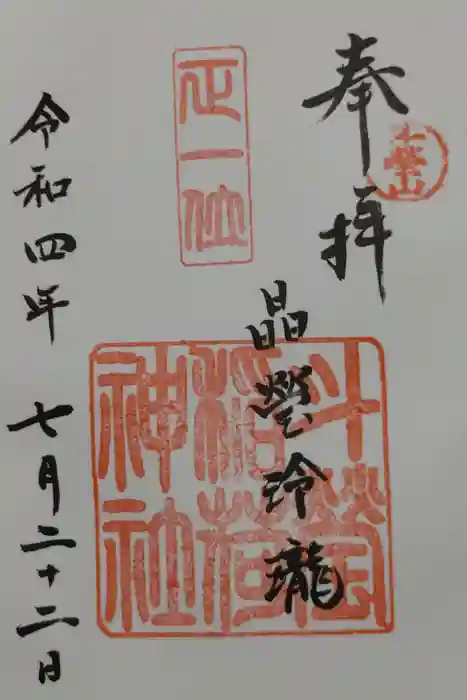 奉拝
晶瑩玲瓏
斗瑩
稲荷
神社
正一位
令和四年 七月二十二日